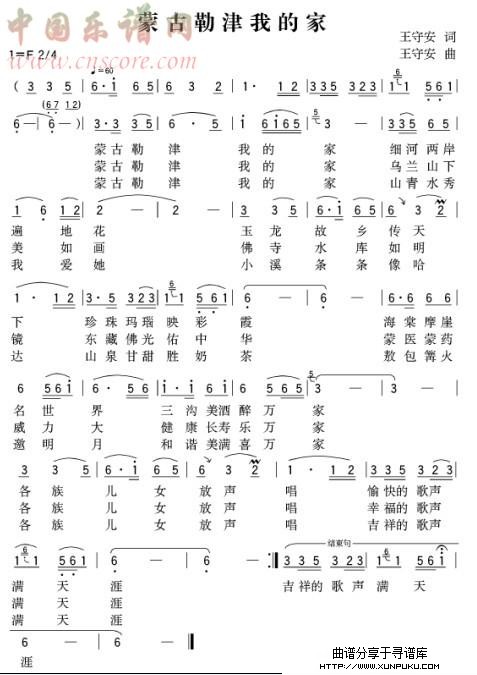 中国乐谱网
www.cnscore.com
蒙古勒津我的家
王守安 词
1=F 2/4
王守安 曲
♩=60
蒙古勒津 我的家 细河两岸
蒙古勒津 我的家 乌兰山下
蒙古勒津 我的家 山青水秀
遍地花 玉龙故乡传天
美如画 佛寺水库如明
我爱她 小溪条条像哈
下 珍珠玛瑙映彩霞 海棠摩崖
镜 东藏佛光佑中华 蒙医蒙药
达 山泉甘甜胜奶茶 敖包篝火
名世界 三沟美酒醉万家
威力大 健康长寿乐万家
邀明月 和谐美满喜万家
各族儿女放声唱 愉快的歌声
各族儿女放声唱 幸福的歌声
各族儿女放声唱 吉祥的歌声
结束句
满天涯 吉祥的歌声满天
满天涯
满天涯
涯
曲谱分享于寻谱库
HTTP://WWW.XUNPUKU.COM